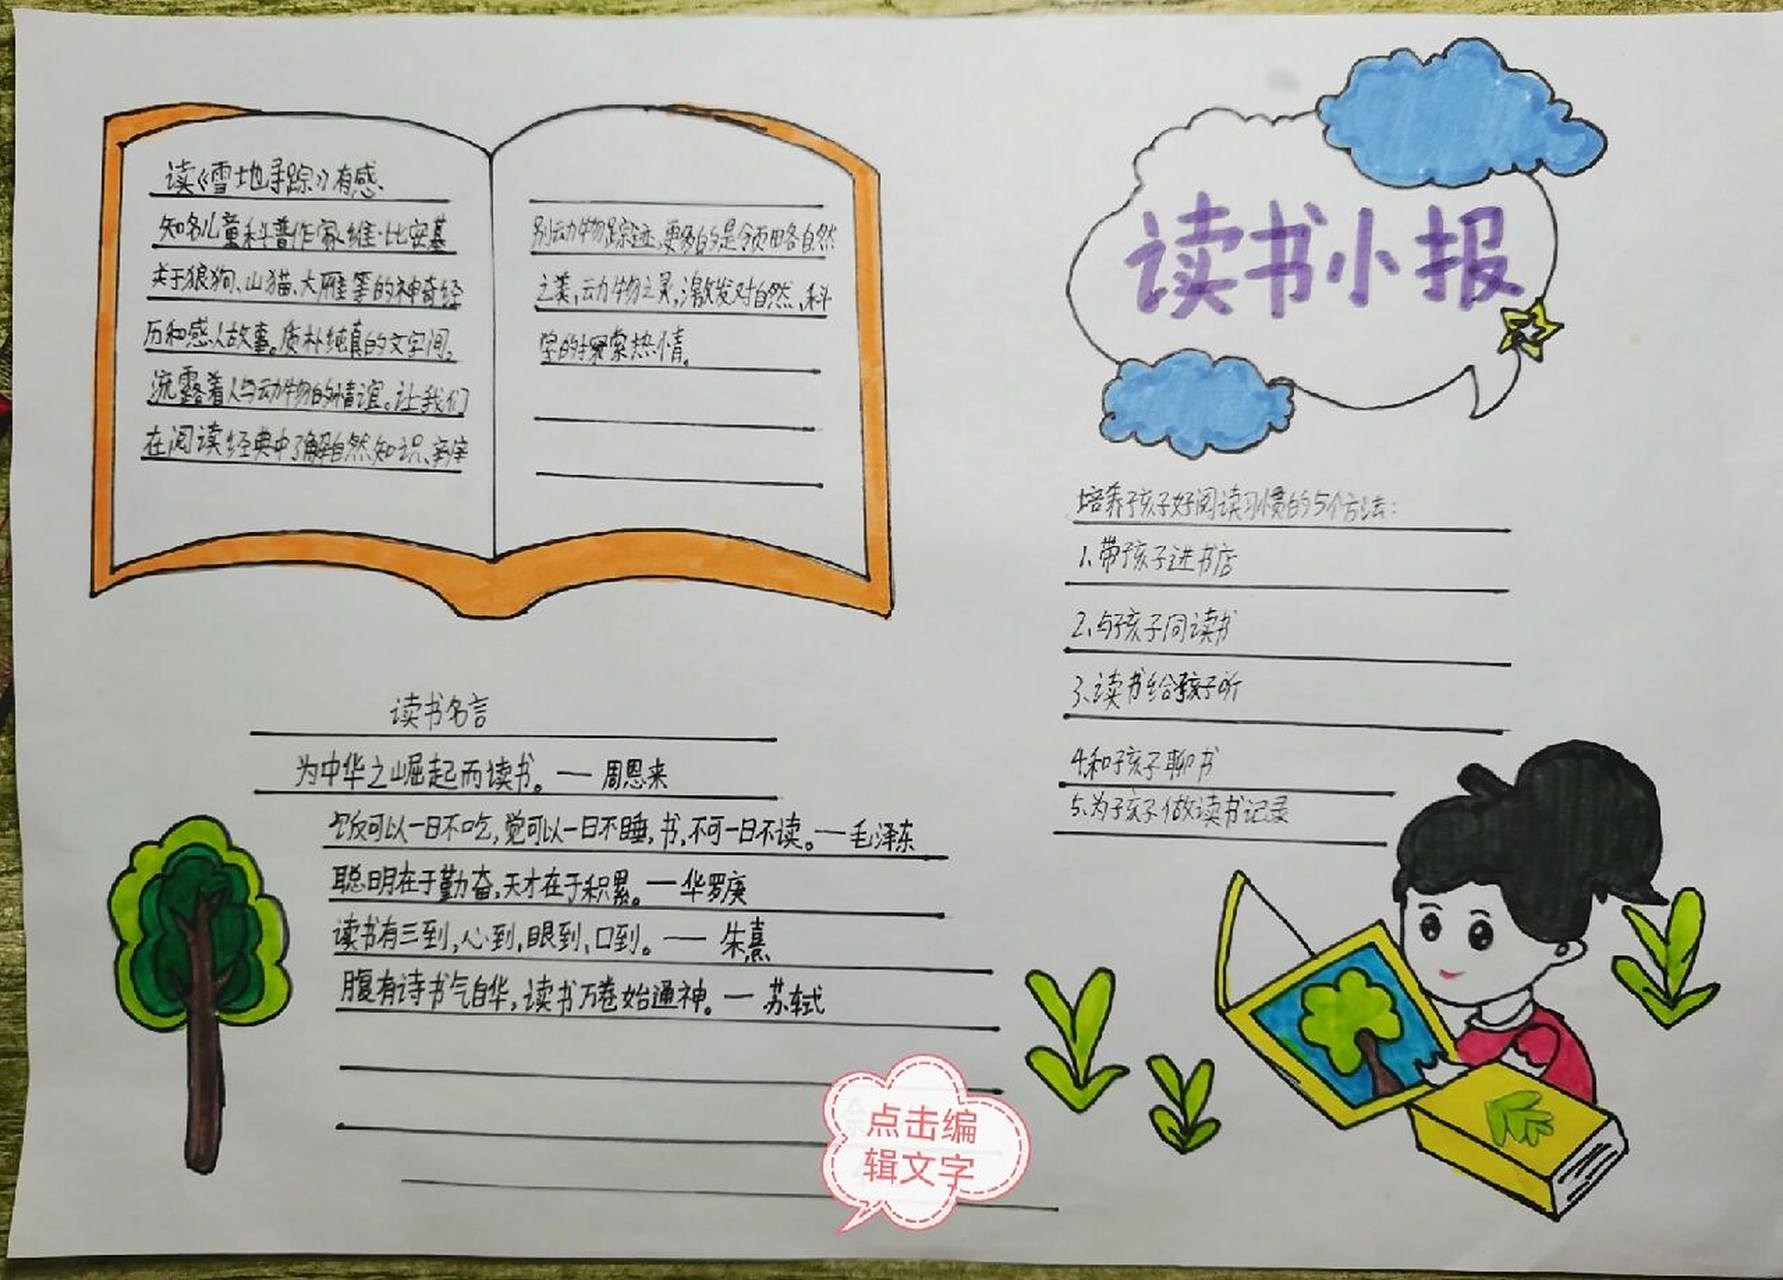 读《雪地寻踪》有感
知名儿童科普作家维·比安基
关于狼狗、山猫、大雁等的神奇经
历和感人故事。质朴纯真的文字间,
流露着人与动物的情谊。让我们
在阅读经典中了解自然知识、辨
别动物踪迹,更多的是领略自然
之美,动物之灵,激发对自然、科
学的探索热情。
读书小报
培养孩子好阅读习惯的5个方法:
1、带孩子进书店
2、与孩子同读书
3、读书给孩子听
4、和孩子聊书
5、为孩子做读书记录
读书名言
为中华之崛起而读书。— 周恩来
饭可以一日不吃,觉可以一日不睡,书,不可一日不读。—毛泽东
聪明在于勤奋,天才在于积累。—华罗庚
读书有三到,心到,眼到,口到。— 朱熹
腹有诗书气自华,读书万卷始通神。— 苏轼
点击编
辑文字